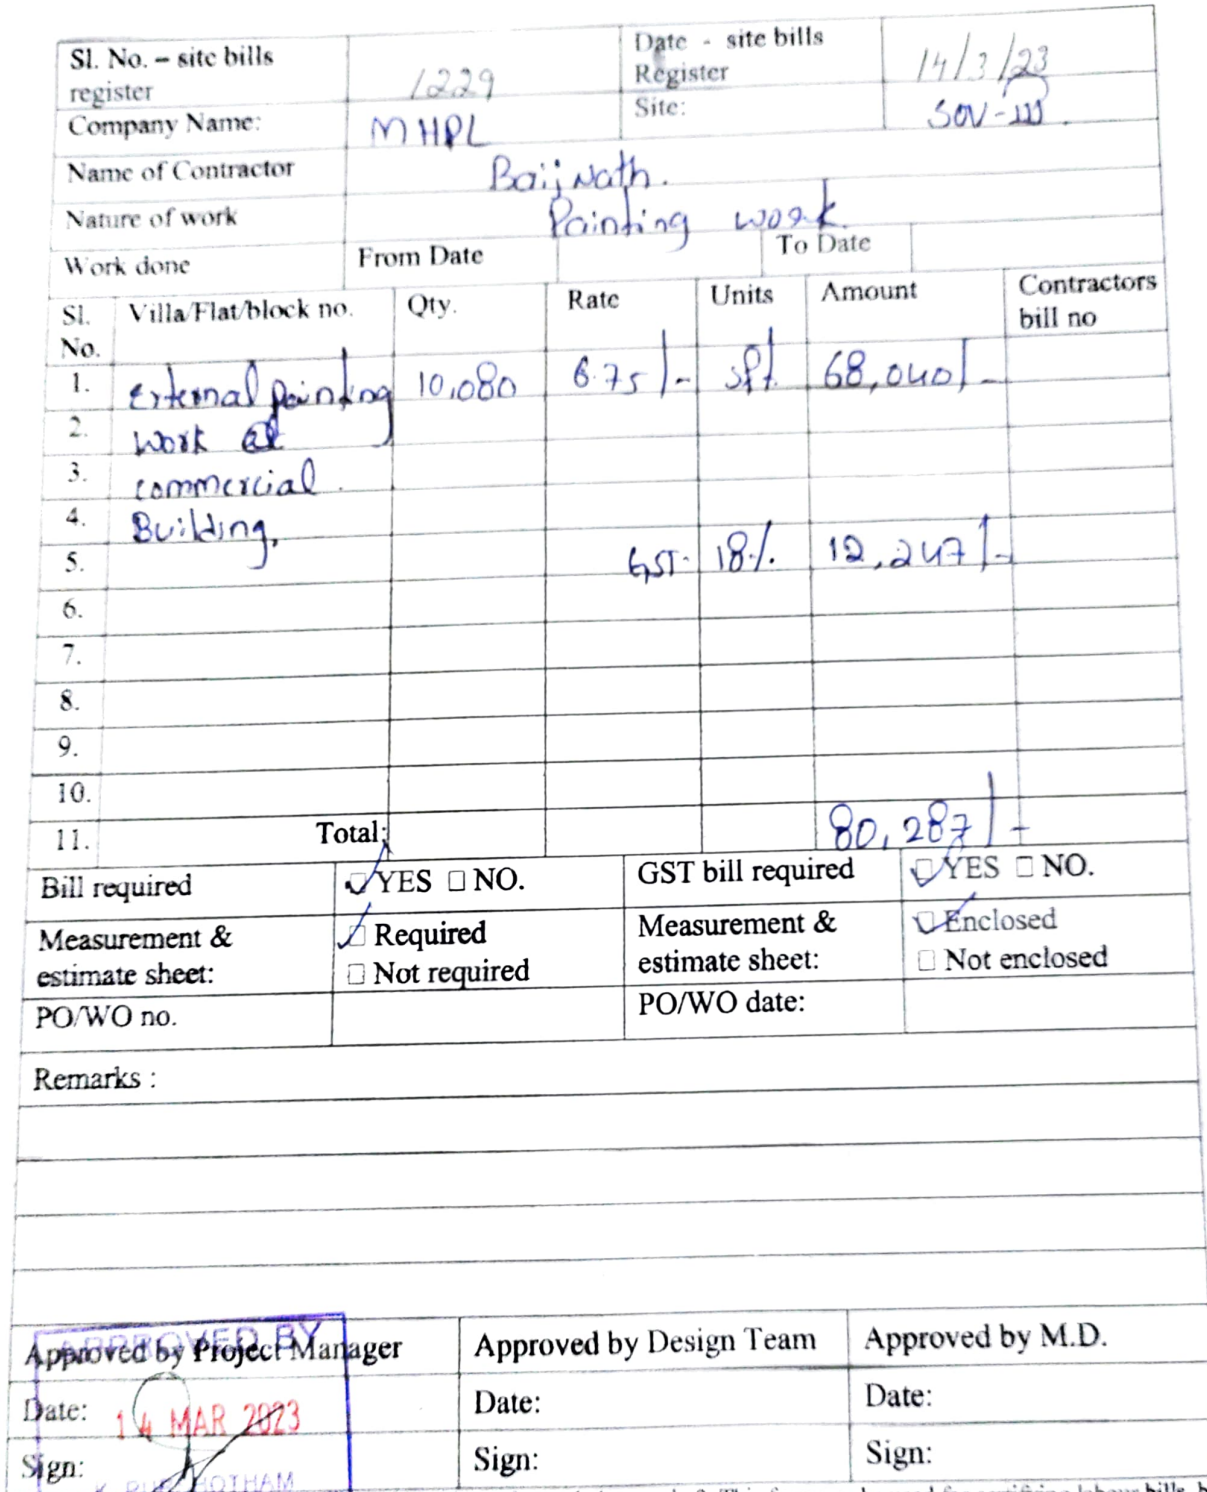 Sl. No. – site bills register 1229 Date - site bills Register 14/3/23
Company Name: MHPL Site: SOV-III.
Name of Contractor Baijnath.
Nature of work Painting work
Work done From Date To Date
Sl. No. Villa/Flat/block no. Qty. Rate Units Amount Contractors bill no
1. External painting 10,080 6.75/- sft 68,040/-
2. work at
3. commercial.
4. Building,
5. GST- 18% 12,247/-
6.
7.
8.
9.
10.
11. Total: 80,287/-
Bill required ☑ YES ☐ NO. GST bill required ☑ YES ☐ NO.
Measurement & estimate sheet: ☑ Required ☐ Not required Measurement & estimate sheet: ☑ Enclosed ☐ Not enclosed
PO/WO no. PO/WO date:
Remarks :
APPROVED BY
Approved by Project Manager Approved by Design Team Approved by M.D.
Date: 14 MAR 2023 Date: Date:
Sign: Sign: Sign: